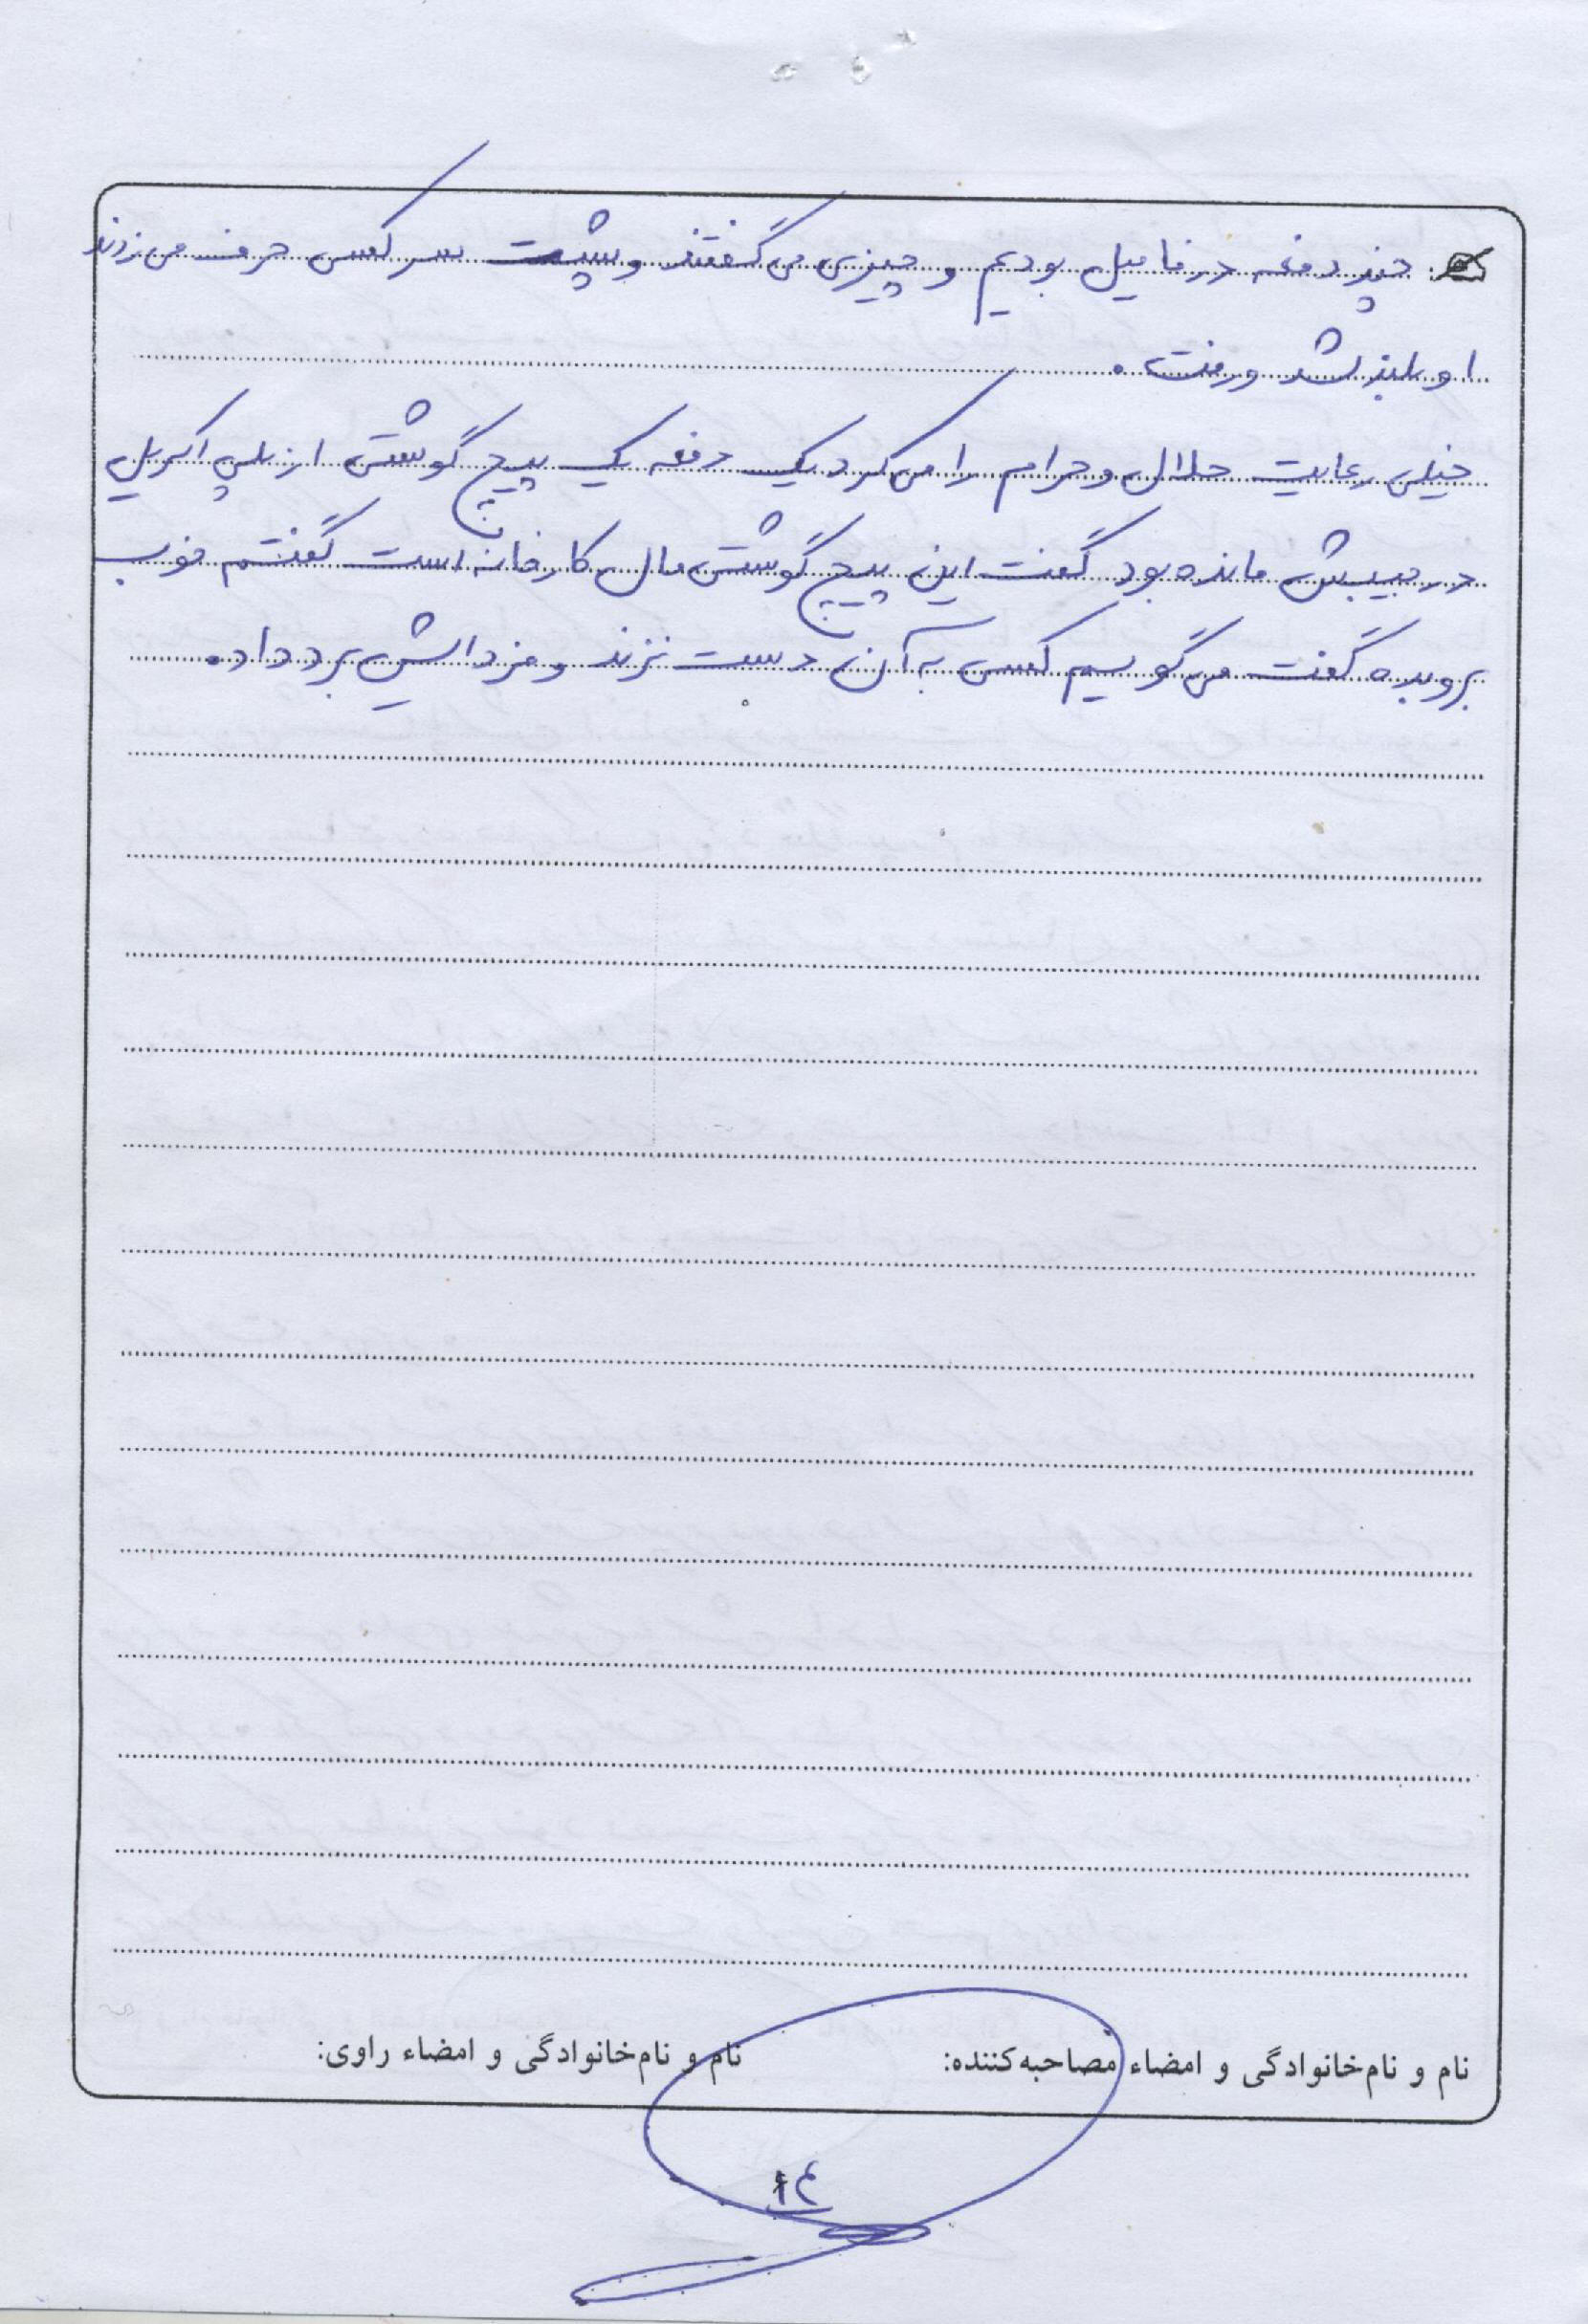 چند دفعه در فامیل بودیم و چیزی می گفتند و پشت سر کسی حرف می زدند
او بلند شد و رفت.
خیلی رعایت حلال و حرام را می کرد یک دفعه یک پیچ گوشتی از پلی اکریل
در جیبش مانده بود گفت این پیچ گوشتی مال کارخانه است گفتم خوب
برو بده گفت می گویم کسی به آن دست نزند و فردایش برد داد.
نام و نام‌خانوادگی و امضاء مصاحبه‌کننده:
نام و نام‌خانوادگی و امضاء راوی:
۱۴